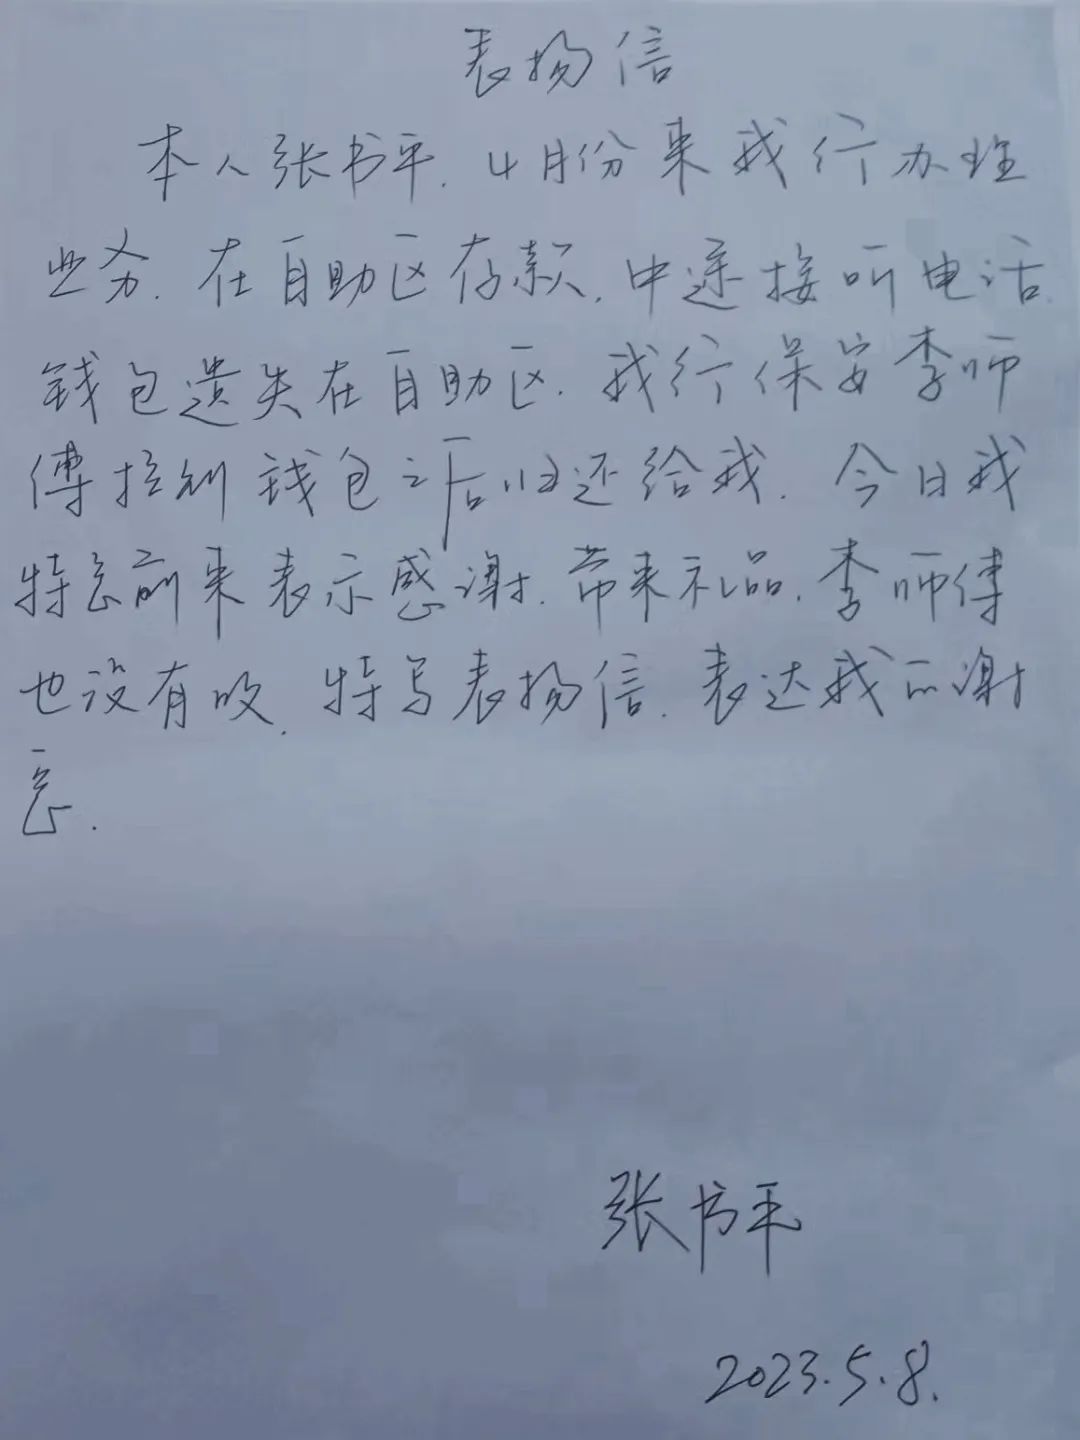 表扬信
本人张书平.4月份来我行办理
业务.在自助区存款.中途接听电话.
钱包遗失在自助区.我行保安李师
傅捡到钱包之后归还给我.今日我
特意前来表示感谢.带来礼品.李师傅
也没有收.特写表扬信.表达我的谢
意.
张书平
2023.5.8.